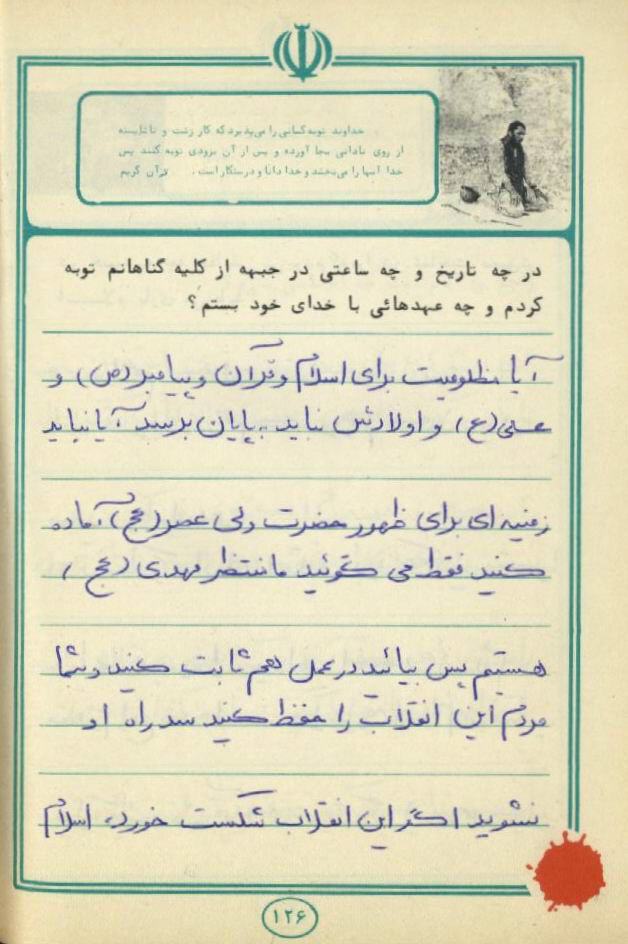 خداوند توبه کسانی را می‌پذیرد که کار زشت و ناشایسته
از روی نادانی بجا آورده و پس از آن بزودی توبه کنند پس
خدا آنها را می‌بخشد و خدا دانا و درستکار است. قرآن کریم
در چه تاریخ و چه ساعتی در جبهه از کلیه گناهانم توبه
کردم و چه عهدهائی با خدای خود بستم؟
آیا مظلومیت برای اسلام و قرآن و پیامبر (ص) و
علی (ع) و اولادش نباید به پایان برسد آیا نباید
زمینه ای برای ظهور حضرت ولی عصر (عج) آماده
کنید فقط می گوئید ما منتظر مهدی (عج)
هستیم پس بیائید در عمل هم ثابت کنید و شما
مردم این انقلاب را حفظ کنید سد راه او
نشوید اگر این انقلاب شکست خورد، اسلام
۱۲۶